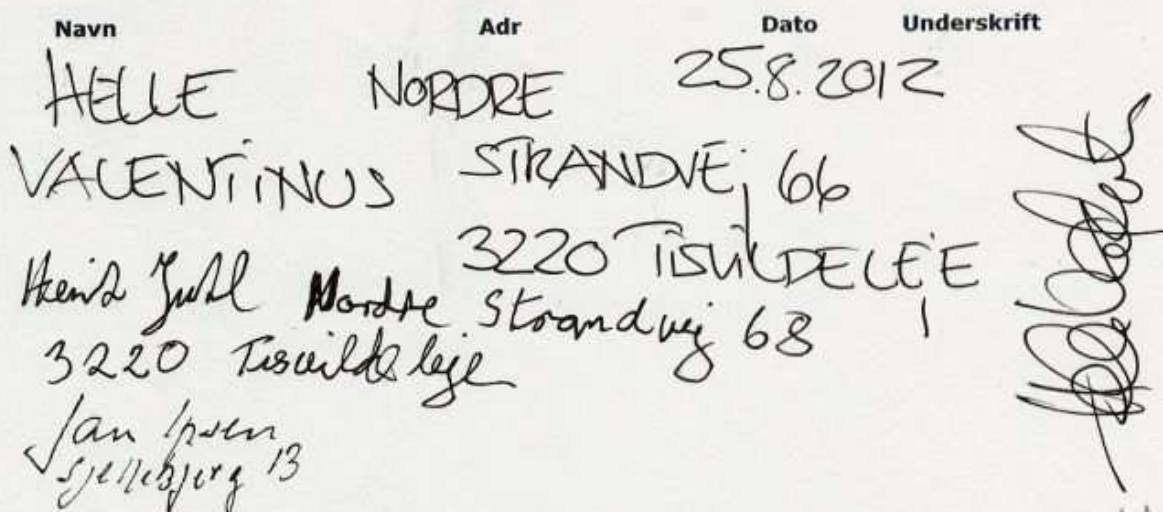 Navn Adr Dato Underskrift
HELLE NORDRE 25.8.2012
VALENTINUS STRANDVEJ 66
3220 TISVILDELEJE
Juhl Nordre Strandvej 68
3220 Tisvildeleje
Jan Ipsen
13